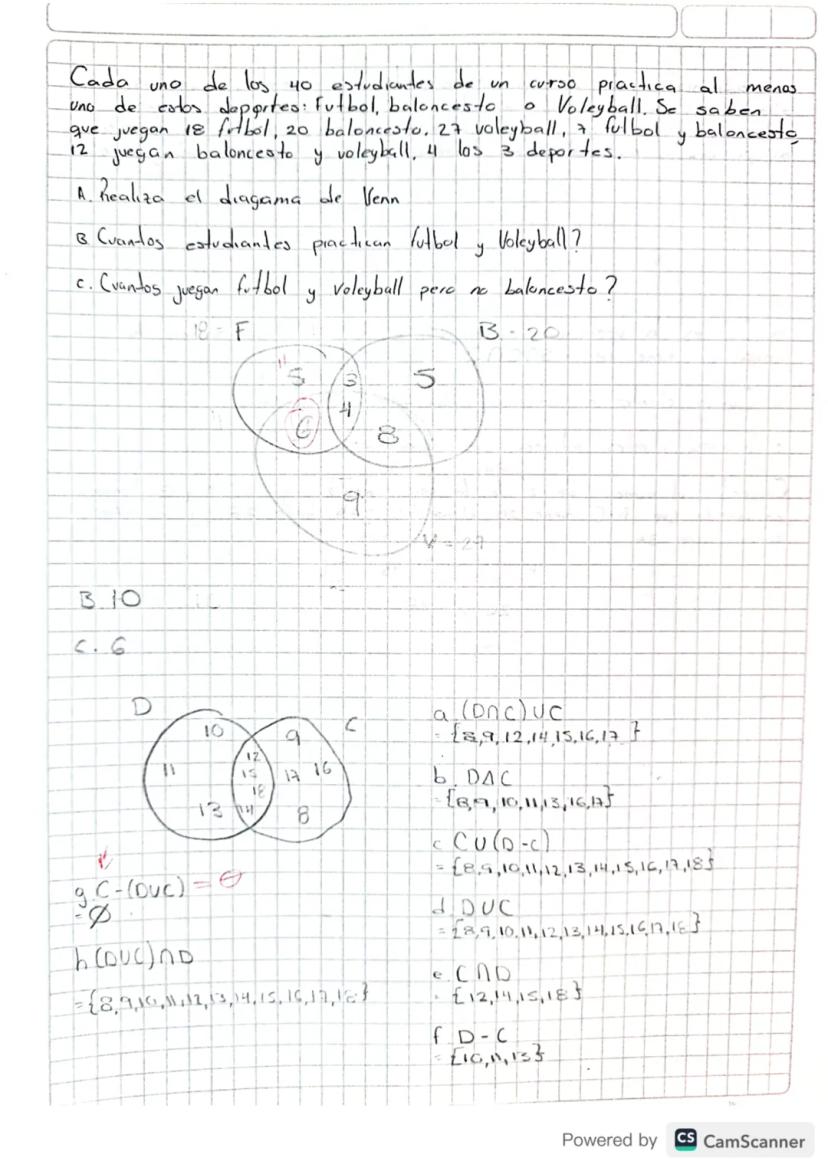 Cada uno de los 40 estudiantes de un curso practica al menos
uno de estos deportes: Futbol, baloncesto o Voleyball. Se saben
que juegan 18 futbol, 20 baloncesto, 27 voleyball, 7 fulbol y baloncesto,
12 juegan baloncesto y voleyball, 4 los 3 deportes.
A. Realiza el diagama de Venn
B Cuantos estudiantes practican futbol y Voleyball?
C. Cuantos juegan futbol y voleyball pero no baloncesto?
18 - F
B - 20
5
3
5
4
6
8
9
V = 27
B. 10
C. 6
D
C
10
9
12
11
15
17
16
18
13
14
8
a. (D∩C)UC
= {8,9,12,14,15,16,17 }
b. D∆C
= {8,9,10,11,13,16,17}
c CU(D-C)
= {8,9,10,11,12,13,14,15,16,17,18}
d. DUC
= {8,9,10,11,12,13,14,15,16,17,18}
e. C∩D
{12,14,15,18}
f D-C
= {10,11,13}
g. C-(DUC) = ∅
= ∅
h (DUC)∩D
= {8,9,10,11,12,13,14,15,16,17,18}
Powered by CS CamScanner